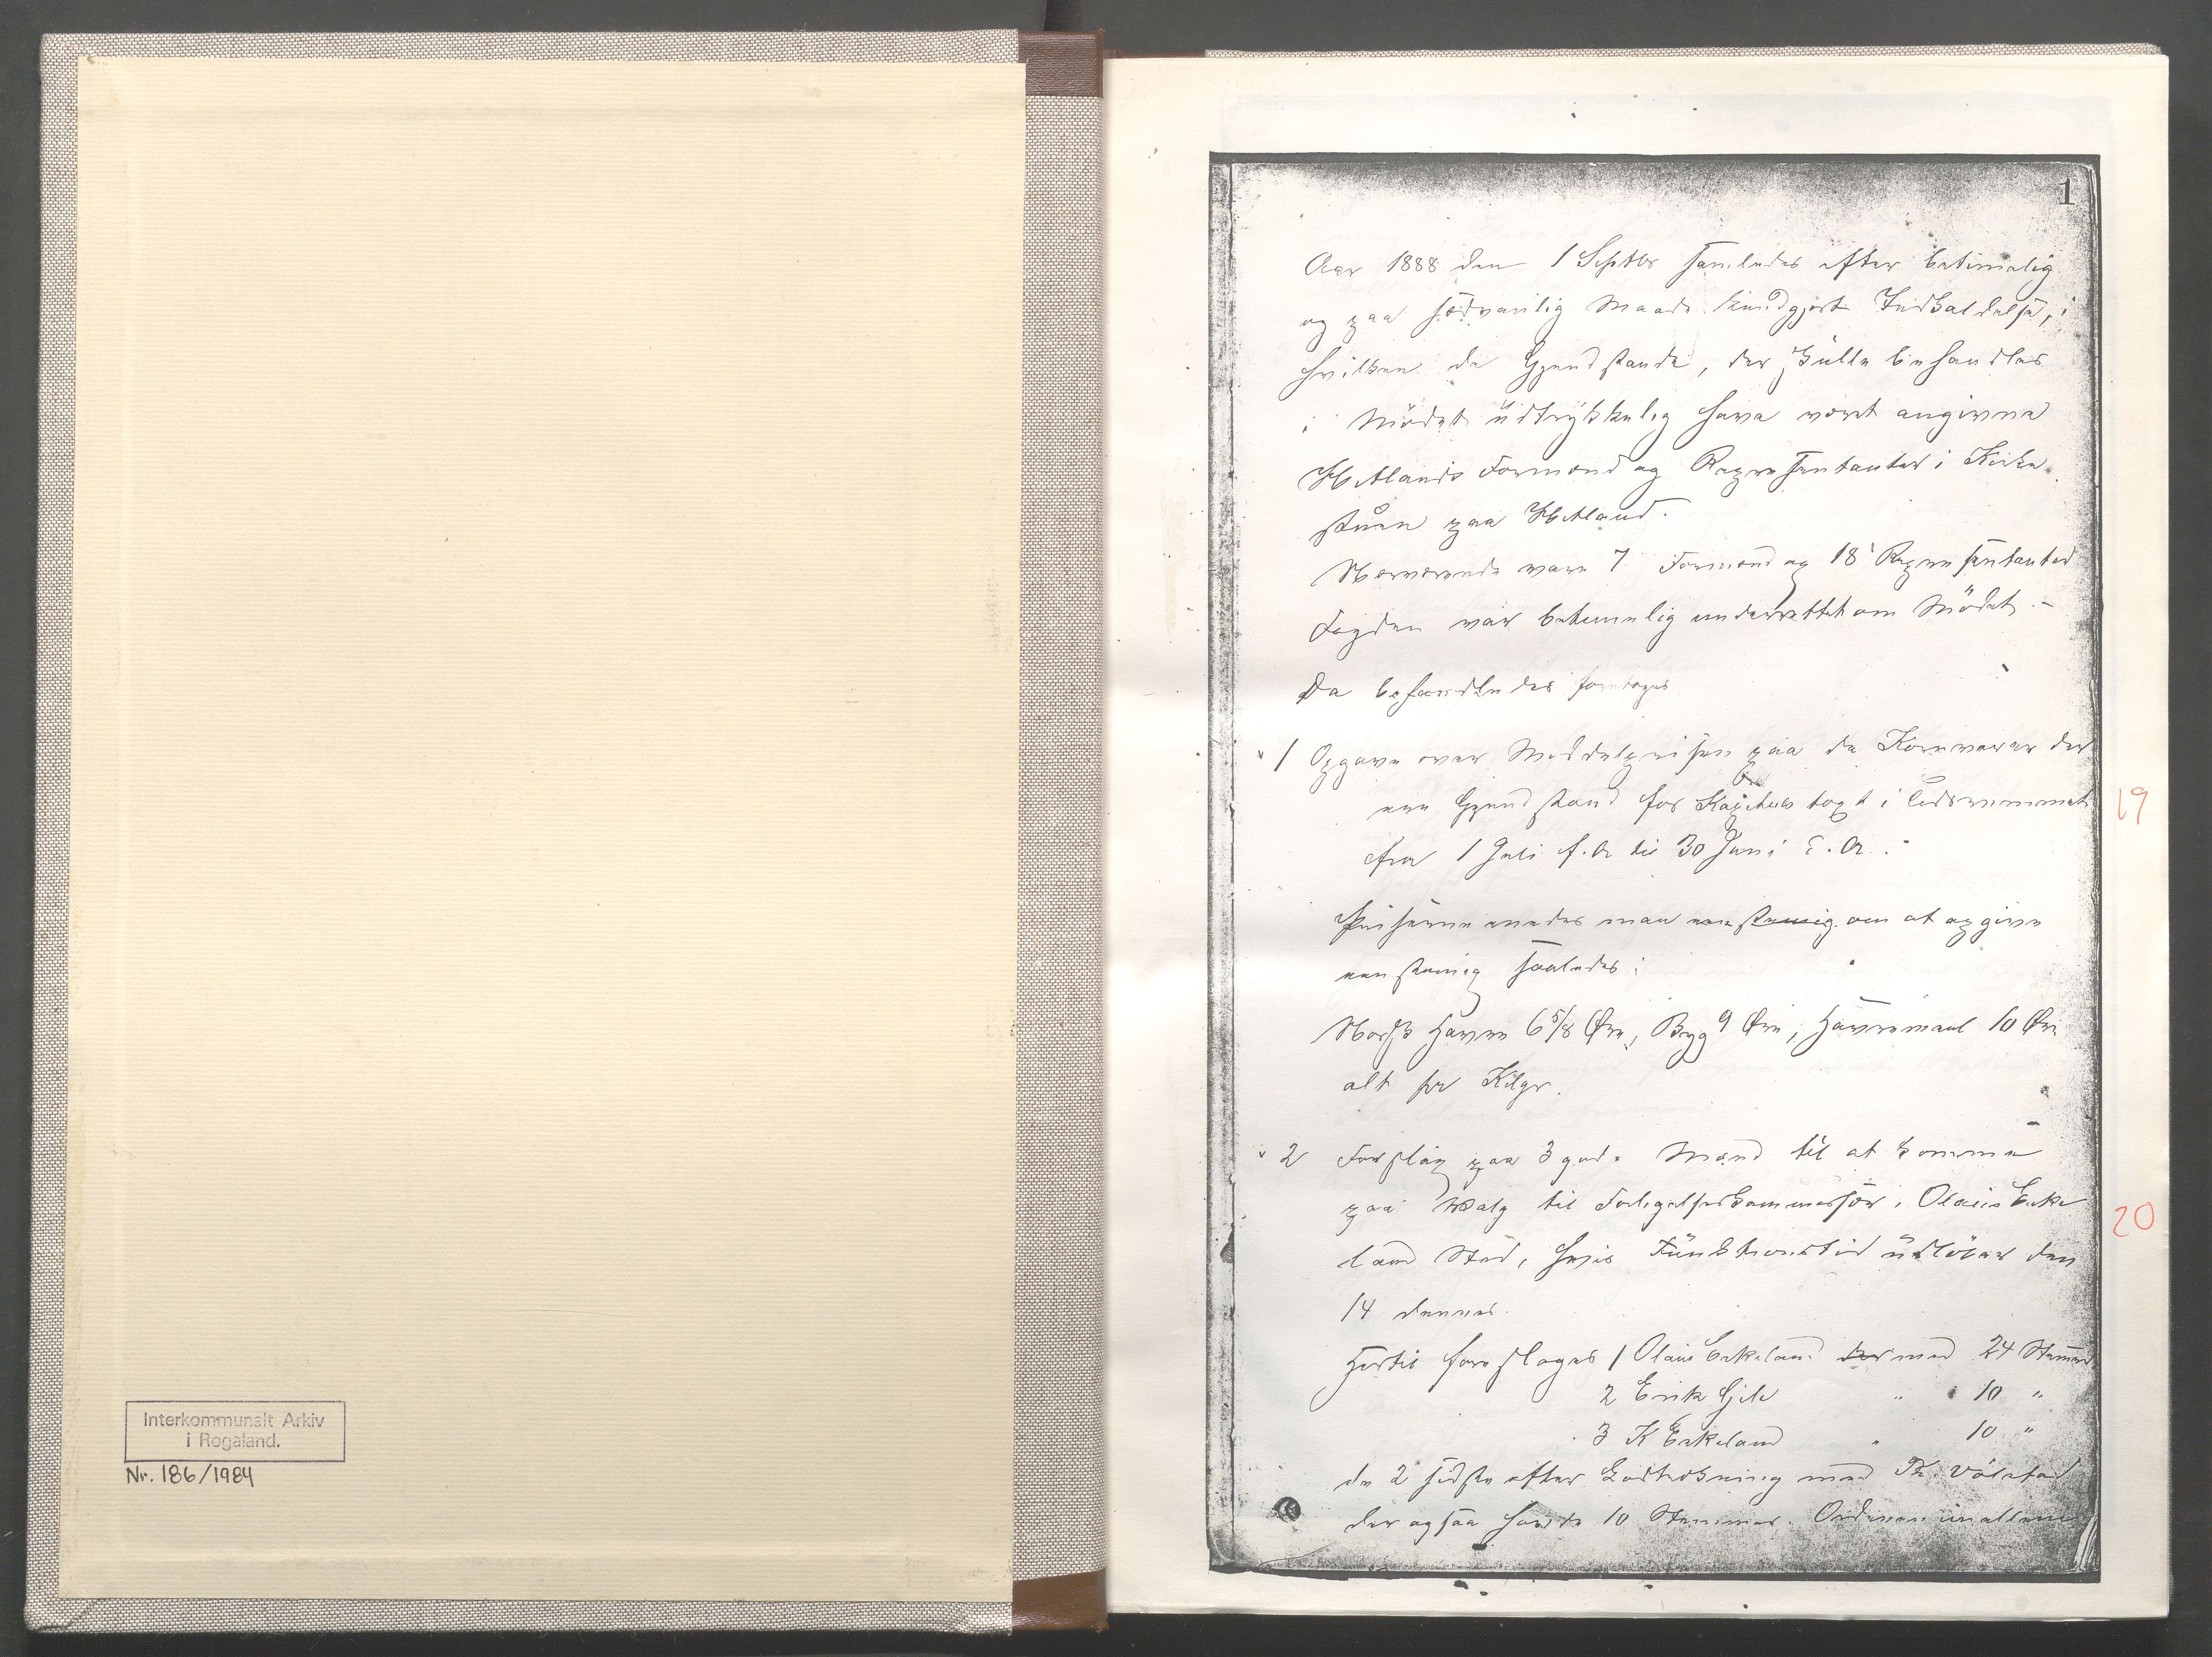 Interkommunalt Arkiv
i Rogaland.
Nr. 186/1984
1
Aar 1888 den 1 Septbr samledes efter betimelig
og paa sedvanlig Maade kundgjort Indkaldelse, i
hvilken de Gjenstande, der skulle behandles
i Mødet udtrykkelig have været angivne
Hetlands Formænd og Repræsentanter i Kirke
stuen paa Hetland.
Nærværende vare 7 Formænd og 18 Repræsentanter
Fogden var betimelig underrettet om Mødet.-
Da behandledes foretoges
1 Opgave over Middelprisen paa de Kornvarer der
ere Gjenstand for i Tidsrummet
19
fra 1 Juli f.A til 30 Juni d.A.:
Priserne enedes man enstemig om at opgive
enstemig saaledes:
Norsk Havre 6 5/8 Øre, Byg 9 Øre, Havremeel 10 Øre
alt pr Kilgr.
2 Forslag paa 3 gode Mænd til at komme
paa Valg til Forligelseskommissær i Olaus Eske
20
land Sted, hvis Funktionstid udløber den
14 dennes.
Hertil foresloges 1 Olaus Eskeland der med 24 Stemmer
2 Erik Gjele " 10 "
3 K Eskeland " 10 "
de 2 sidste efter Lodtrækning med
der ogsaa havde 10 Stemmer. Ordenen imellem